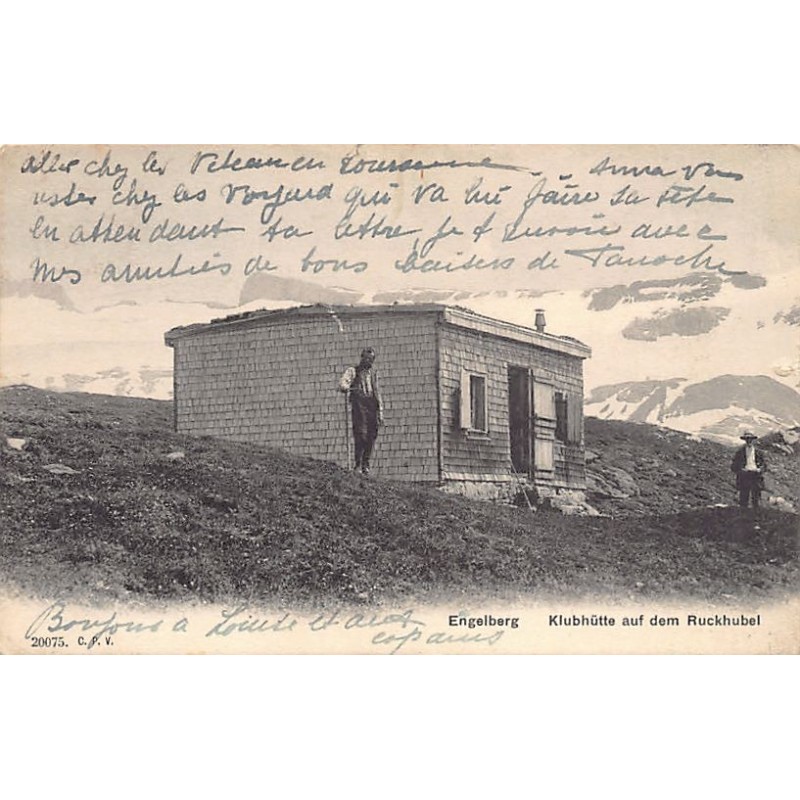 aller chez les Veteau en Touraine Anna va
rester chez les Voyeurd qui va lui faire sa fête
en attendant ta lettre, je t envoie avec
mes amitiés de bons baisers de Tanoche
Engelberg Klubhütte auf dem Ruckhubel
Bonjour a Louise et aux
copains
20075. C. P. V.